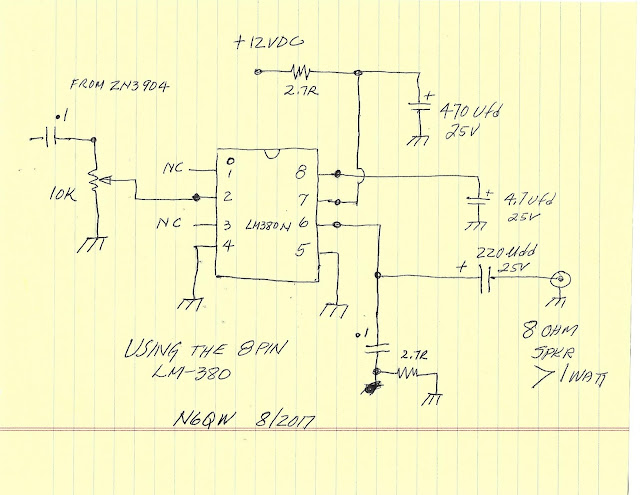 +12VDC
2.7R
FROM 2N3904
+
470 Ufd
25V
.1
10K
NC
1
2
NC
3
4
LM380N
8
7
6
5
+
4.7Ufd
25V
220 Ufd
+
25V
8 OHM
SPKR
>1 WATT
.1
2.7R
USING THE 8 PIN
LM-380
N6QW 8/2017